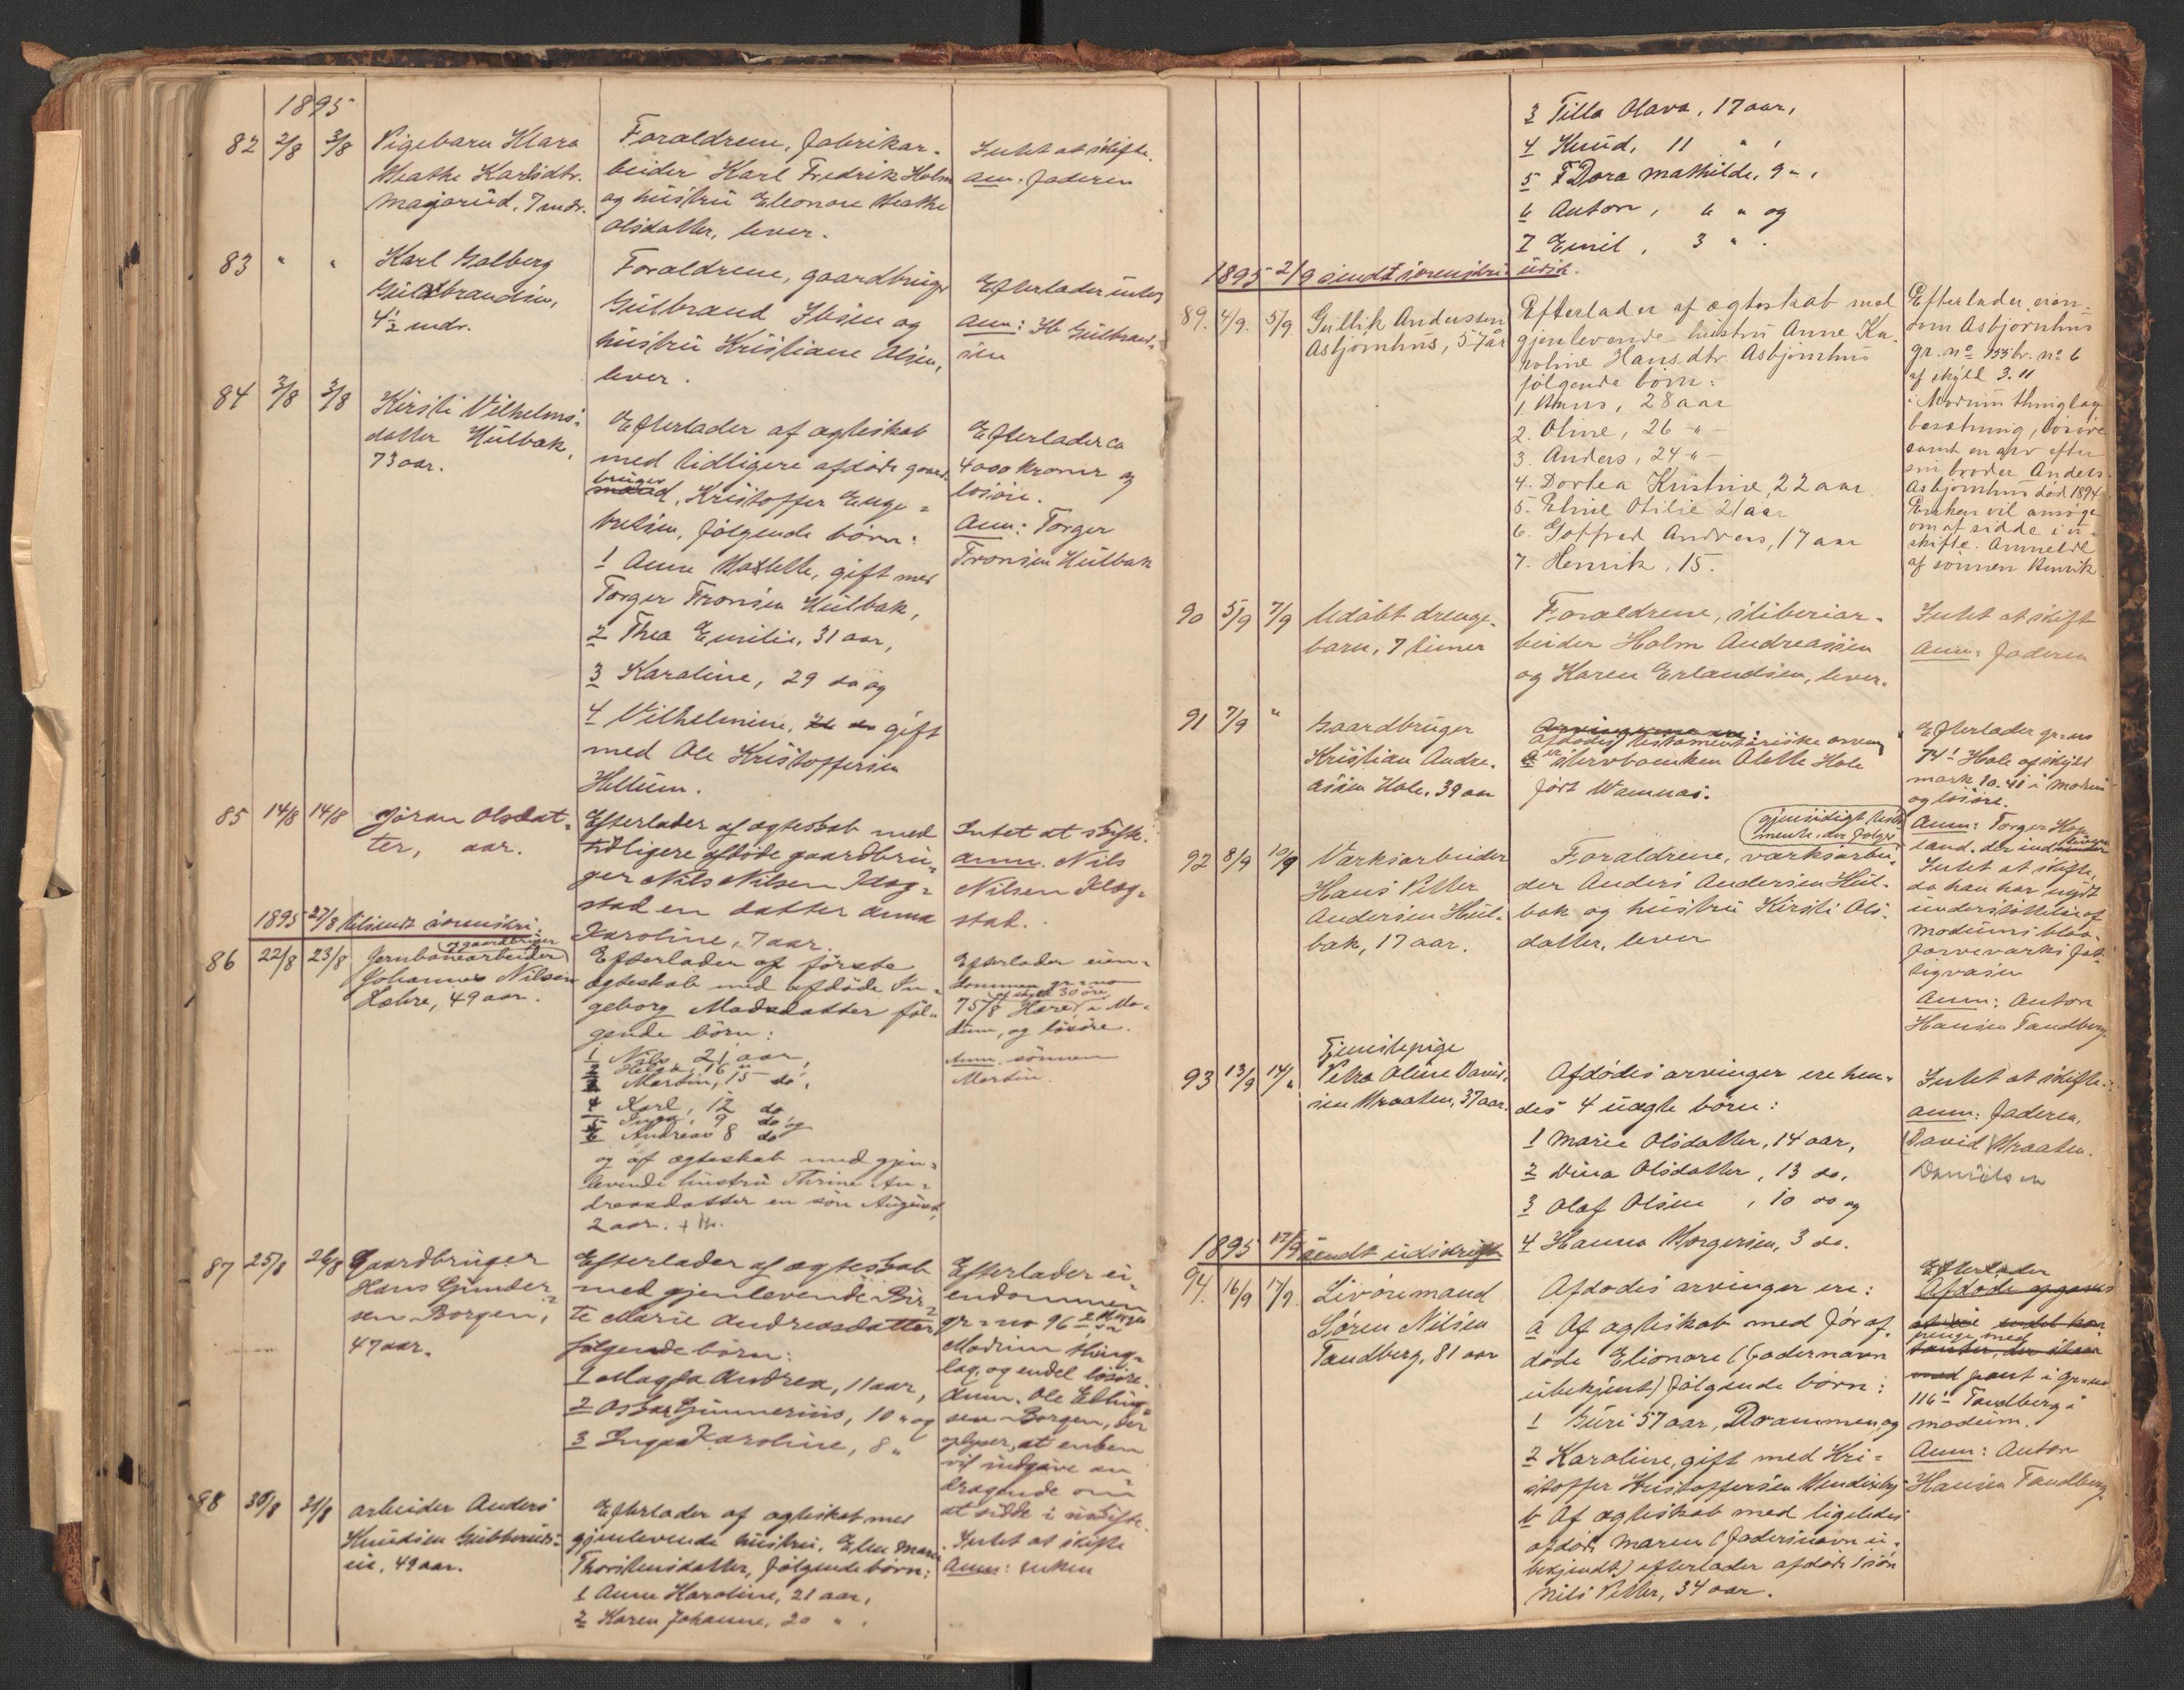 1895
82 2/8 3/8 Pigebarn Klara
Karlsdtr.
7 mdr.
Foraldrene, fabrikar-
beider Karl Fredrik Holm
og hustru Eleonore
Olsdatter, lever.
Intet at skifte.
Anm. faderen
83 " "
Karl Solberg
Gulbrandsen,
4½ mdr.
Foraldrene, gaardbruger
Gulbrand Ibsen og
hustru Kristiane Olsen,
lever.
Efterlader intet
Anm: Ib Gulbrand-
sen
84 3/8 3/8
Kirsti Vilhelms-
datter Hulbak,
73 aar.
Efterlader af ægteskab
med tidligere afdøde gaard-
bruger
Kristoffer Enge-
bretsen, følgende børn:
1 Anne gift med
Torger Tronsen Hulbak,
2 Thea Emilie, 31 aar,
3 Karoline, 29 do og
4 Vilhelmine, gift
med Ole Kristoffersen
Hellum.
Efterlader ca
4000 kroner og
løsøre.
Anm: Torger
Tronsen Hulbak
85 14/8 14/8
Gjøran Olsdat-
ter, aar.
Efterlader af ægteskab med
tidligere afdøde gaardbru-
ger Nils Nilsen
stad en datter Anna
Karoline, 7 aar.
Intet at skifte.
Anm. Nils
Nilsen
stad.
1895 27/8 tilsendt sorenskri-
86 22/8 23/8
og gaardbruger
Jernbanearbeider
Johannes Nilsen
49 aar.
Efterlader af første
ægteskab med afdøde In-
geborg Madsdatter føl-
gende børn:
1 Nils, 21 aar,
2 Helga, 16 "
3 Martin, 15 do,
4 Karl, 12 do
5 Inga, 9 do og
6 Andreas 8 do
og af ægteskab med gjen-
levende hustru Thrine An-
dreasdatter en søn August,
2 aar.
Efterlader eien-
dommen gr=no
af skyld 30 øre
75/8 i Mo-
dum, og løsøre.
Anm. sønnen
Martin.
87 25/8 26/8
Gaardbruger
Hans Gunder-
sen Borgen,
47 aar.
Efterlader af ægteskab
med gjenlevende Bir-
te Marie Andreasdatter
følgende børn:
1 Magda Andrea, 11 aar,
2 Oskar Gunnerius, 10 " og
3 Inga Karoline, 8 "
Efterlader ei-
endommen
gr=no 96
Modum thing-
lag, og endel løsøre.
Anm. Ole
sen Borgen, der
oplyser, at enken
vil indgive an-
dragende om
at sidde i uskifte.
88 30/8 31/8
Arbeider Anders
Knudsen Gubberuds-
eie, 49 aar.
Efterlader af ægteskab med
gjenlevende hustru, Elen Marie
Thorstensdatter, følgende børn:
1 Anne Karoline, 21 aar,
2 Karen Johanne, 20 " ,
Intet at skifte
Anm: enken
3 Tilla Olava, 17 aar,
4 Knud, 11 " ,
5 Dora Mathilde, 9 " ,
6 Anton, 6 " og
7 Emil, 3 " .
1895 2/9 sendt sorenskri- udsk.
89. 4/9. 5/9.
Gullik Andersen
Asbjørnhus, 57 år
Efterlader af ægteskab med
gjenlevende hustru Anne Ka-
roline Hans.dtr. Asbjørnhus
følgende børn:
1. Hans, 28 aar
2. Oline, 26 -"-
3. Anders, 24 -"-
4. Dortea Kristine, 22 aar
5. Eline Otilie 21 aar
6. Goffred Andreas, 17 aar
7. Henrik, 15.
Efterlader eien-
dom Asbjørnhus
gr. no 155 br. no 6
af skyld 3.11
i Modum thinglag
besætning, løsøre
samt en arv efter
sin broder Anders
Asbjørnhus død 1894
Enken vil ansøge
om at sidde i u-
skifte. Anmeldt
af sønnen Henrik.
90 5/9 7/9
Udøbt drenge-
barn, 7 timer
Foraldrene, sliberiar-
beider Holm Andreassen
og Karen Erlandsen, lever.
Intet at skift
Anm: faderen
91 7/9 "
Gaardbruger
Kristian Andre-
assen Hole, 39 aar
Afdødes testamentariske arving
er Olette Hole
født
Efterlader gr=no
74/1 Hole af skyld
mark 10.41 i Modum
og løsøre.
Anm: Torger Hop-
land, der
gjensidigt testa-
mente, der følger
92 8/9 10/9
Værksarbeider
Hans Petter
Andersen Hul-
bak, 17 aar.
Foraldrene, værksarbei-
der Anders Andersen Hul-
bak og hustru Kirsti Ols-
datter, lever
Intet at skifte,
da han har nydt
understøttelse af
Modums blaa-
farveværks fat-
tigvæsen
Anm: Anton
Hansen Tandberg.
93 13/9 14/"
Tjenestepige
Petra Oline
sen Braaten, 37 aar.
Afdødes arvinger ere hen-
des 4 uægte børn:
1 Marie Olsdatter, 14 aar,
2 Dina Olsdatter, 13 do,
3 Olaf Olsen , 10 do og
4 Hanna 3 do.
Intet at skifte.
Anm: faderen,
David Braaten.
Danielsen
1895 17/9 sendt udskrift
94. 16/9 17/9.
Livøremand
Søren Nilsen
Tandberg, 81 aar
Afdødes arvinger ere:
a Af ægteskab med før af-
døde Elionore (fadernavn
ubekjent) følgende børn:
1 Guri 57 aar, Drammen, og
2 Karoline, gift med Kri-
stoffer Kristoffersen
b Af ægteskab med ligeledes
afdøde Maren (fadersnavn u-
bekjendt) efterlader afdøde 1 søn
Nils Petter, 34 aar.
Efterlader
penge med
pant i gr=no
116/1 Tandberg i
Modum.
Anm: Anton
Hansen Tandberg.